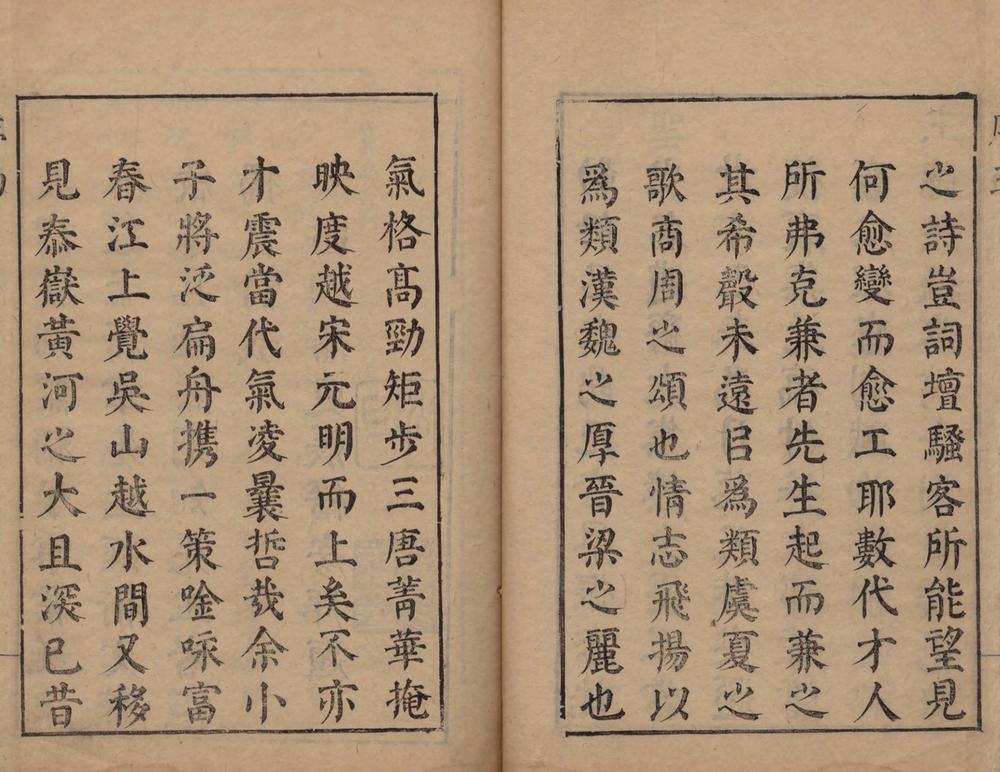 之詩豈詞壇騷客所能望見
何愈變而愈工耶數代才人
所弗克兼者先生起而兼之
其希聲未遠㠯爲類虞夏之
歌商周之頌也情志飛揚以
爲類漢魏之厚晉梁之麗也
氣格高勁矩步三唐菁華掩
映度越宋元明而上矣不亦
才震當代氣凌曩哲哉余小
子將泛扁舟攜一策唫咏富
春江上覺吳山越水間又移
見泰嶽黃河之大且深已昔